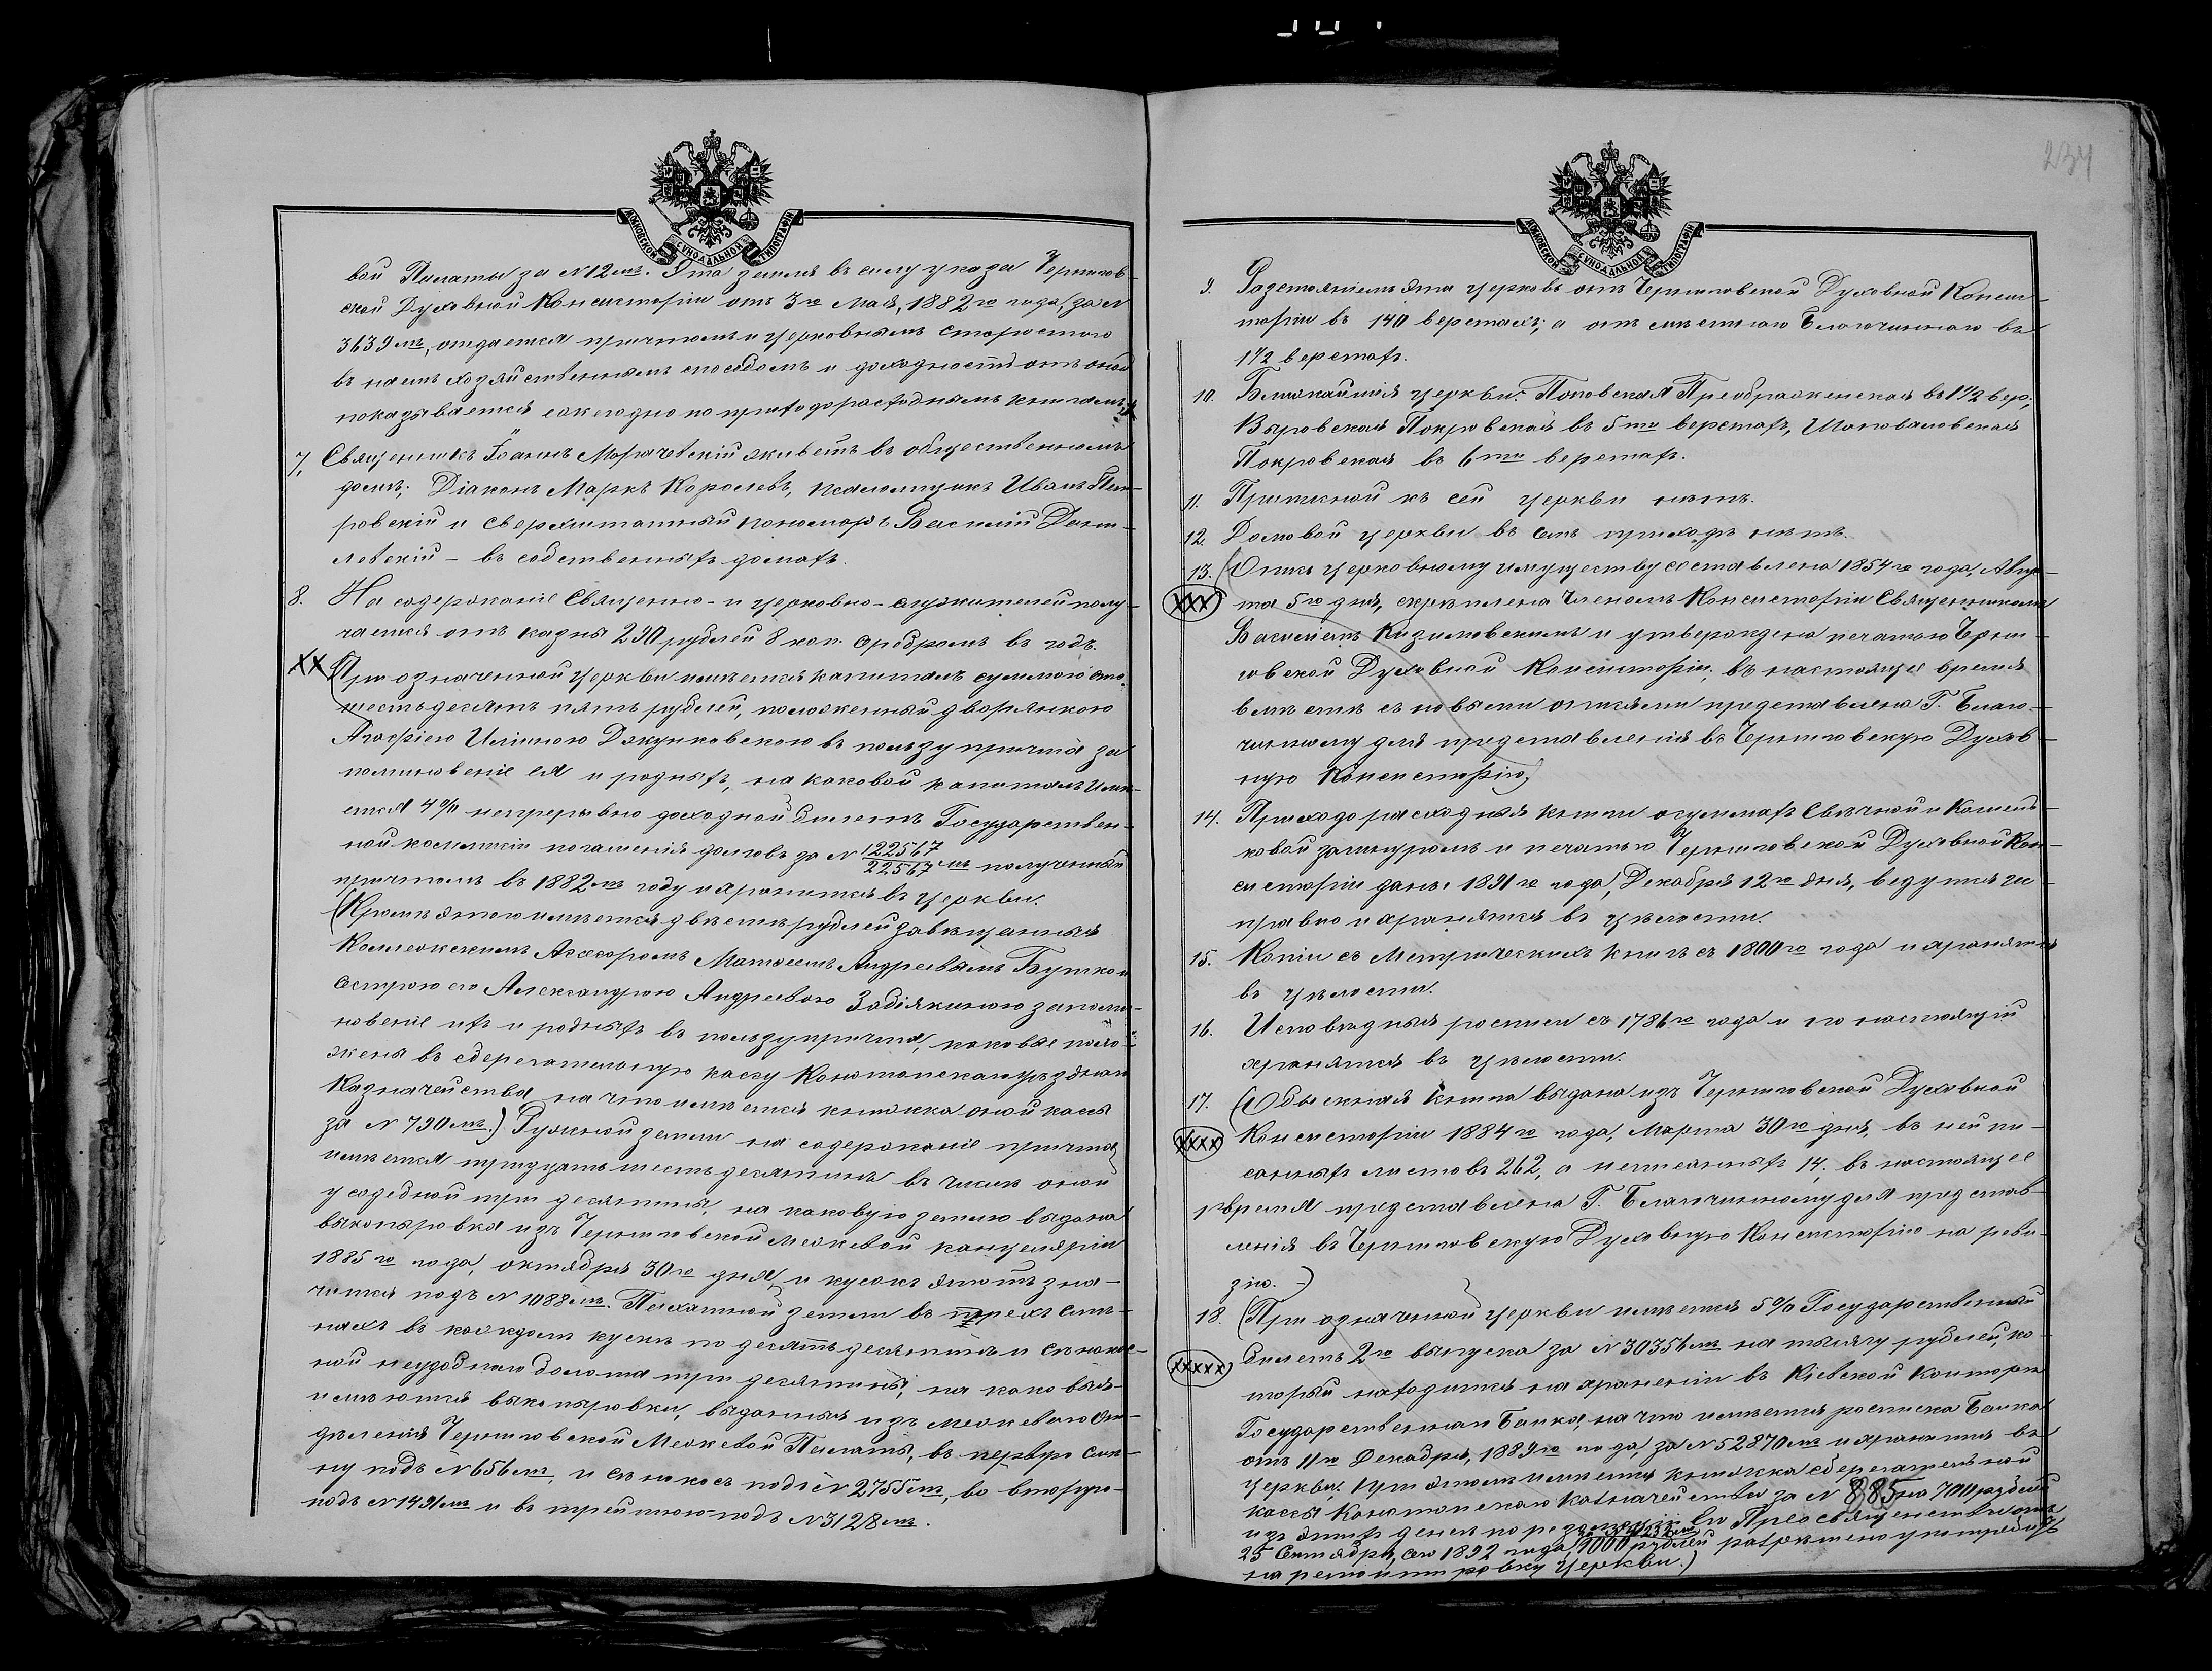 234
МОСКОВСКОЙ СУНОДАЛЬНОЙ ТИПОГРАФІИ
вой Палаты за N 12мъ. Эта земля въ силу указа Чернигов-
ской Духовной Консисторіи отъ 3го Мая, 1882го года, за N
3639мъ, отдается причтомъ и церковнымъ старостою
въ наемъ хозяйственнымъ способомъ и доходность отъ оной
показывается ежегодно по приходорасходнымъ книгамъ.
7, Священникъ Іоаннъ живетъ въ общественномъ
домѣ; Діаконъ Маркъ Королевъ, псаломщикъ Иванъ Пет-
ровскій и сверхштатный пономарь Василій Дани-
левскій - въ собственныхъ домахъ.
8. На содержаніе Священно- и церковно-служителей полу-
чается отъ казны 290 рублей 8 коп. сребромъ въ годъ.
XX (При означенной Церкви имѣется капиталъ суммою сто
шестьдесятъ пять рублей, положенный дворянкою
Агафіею въ пользу причта за
поминовеніе ея и родныхъ, на каковой капиталъ имѣ-
ется 4% непрерывно доходной билетъ Государствен-
ной коммисіи погашенія долговъ за N 122567/22567мъ полученный
причтомъ въ 1882мъ году и хранится въ церкви.
(Кромѣ этого имѣется двѣстѣ рублей завѣщанныя
Коллежскимъ Ассесоромъ Матвеемъ Андреевымъ и
сестрою его Александрою Андреевою за поми-
новеніе ихъ и родныхъ въ пользу причта, каковые поло-
жены въ сберегательную кассу Конотопскаго уѣзднаго
Казначейства на что имѣется книжка оной кассы
за N 790мъ.) Ружной земли на содержаніе причта
имѣется тридцать шесть десятинъ въ числѣ оной
усадебной три десятины, на каковую землю выдана
выкопировка изъ Черниговской Межевой канцеляріи
1885го года, октября 30го дня, и кусокъ этотъ зна-
чится подъ N 1088мъ. Пахатной земли въ трехъ смѣ-
нахъ въ каждомъ кускѣ по десять десятинъ и сѣнокос-
ной неудобнаго болота три десятины, на каковыя
имѣются выкопировки, выданныя изъ межеваго От-
дѣленія Черниговской Межевой Палаты, въ первую смѣ-
ну подъ N 656мъ, и сѣнокосъ подъ N 2755мъ, во вторую-
подъ N 1491мъ и въ третьюю-подъ N 3128мъ.
МОСКОВСКОЙ СУНОДАЛЬНОЙ ТИПОГРАФІИ
9. Разстояніемъ эта церковь отъ Черниговской Духовной Консис-
торіи въ 140 верстахъ; а отъ мѣстнаго Благочиннаго въ
1 1/2 верстахъ.
10. Ближайшія церкви: Поповская Преображенская въ 1 1/2 вер;
Выровская Покровская въ 5ти верстахъ, Шаповаловская
Покровская въ 6ти верстахъ.
11. Приписной къ сей церкви нѣтъ.
12. Домовой церкви въ семъ приходѣ нѣтъ.
13. (Опись церковному имуществу составлена 1854го года, Авгус-
XXX та 5го дня, скрѣплена Членомъ Консисторіи Священникомъ
Василіемъ и утверждена печатью Черни-
говской Духовной Консисторіи; въ настоящее время
вмѣстѣ съ новыми описями представлена Г. Благо-
чинному для представленія въ Черниговскую Духов-
ную Консисторію)
14. Приходо расходныя книги о суммахъ Свѣчной и Кошель-
ковой за шнуромъ и печатью Черниговской Духовной Кон-
систоріи даны 1891го года, Декабря 12го дня, ведутся ис-
правно и хранятся въ цѣлости.
15. Копіи съ Метрическихъ книгъ съ 1800го года и хранятся
въ цѣлости.
16. Исповѣдныя росписи съ 1786го года и по настоящій
хранятся въ цѣлости.
17. (Обыскная книга выдана изъ Черниговской Духовной
XXXX Консисторіи 1884го года, Марта 30го дня, въ ней пи-
санныхъ листовъ 262, а неписанныхъ 14. въ настоящее
время представлена Г. Благочинному для представ-
ленія въ Черниговскую Духовную Консисторію на реви-
зію. -)
18. (При означенной Церкви имѣется 5% Государственный
XXXXX билетъ 2го выпуска за N 30356мъ на тысячу рублей, ко-
торый находится на храненіи въ Кіевской Конторѣ
Государственнаго Банка, на что имѣется росписка Банка
отъ 11го Декабря, 1889го года, за N 52870мъ и хранится въ
церкви. При этомъ имѣется книжка сберегательной
кассы Конотопскаго Казначейства за N 885 на 700 рублей
изъ этихъ денегъ по резолюціи Его Преосвященства отъ
25 Сентября, сего 1892 года, 1000 рублей разрѣшено употребить
на ремонтировку Церкви.)